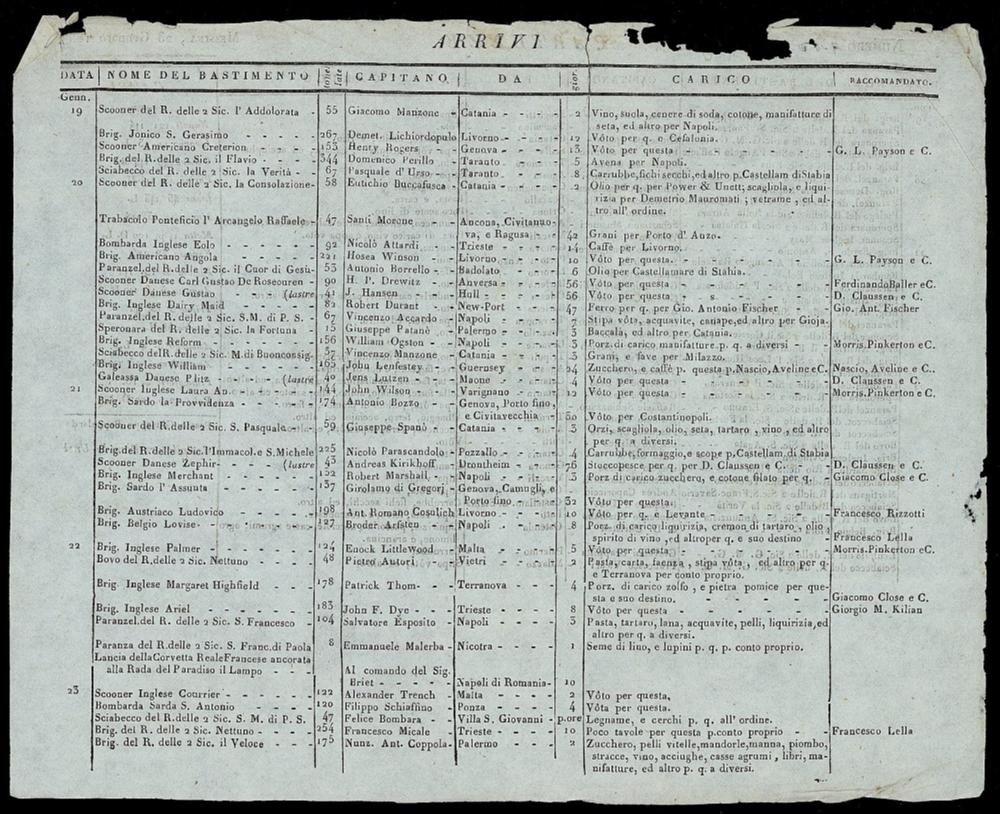 ARRIVI
DATA NOME DEL BASTIMENTO CAPITANO. DA gior. CARICO RACCOMANDATO.
Genn.
19 Scooner del R. delle 2 Sic. l' Addolorata - 55 Giacomo Manzone - Catania - - - - 2 Vino, suola, cenere di soda, cotone, manifatture di
seta, ed altro per Napoli.
Brig. Jonico S. Gerasimo - - - - - 267 Demet. Lichiordopulo Livorno - - - - 12 Vôto per q. o Cefalonia.
Scooner Americano Creterion - - - - 153 Henry Rogers - Genova - - - - 13 Vôto per questa - - - - - - G. L. Payson e C.
Brig. del R. delle 2 Sic. il Flavio - - - - 344 Domenico Perillo - Taranto - - - - 5 Avena per Napoli.
Sciabecco del R. delle 2 Sic. la Verità - - 67 Pasquale d' Urso - Taranto - - - - 8 Carrubbe, fichi secchi, ed altro p. Castellam di Stabia
20 Scooner del R. delle 2 Sic. la Consolazione - 58 Eutichio Buccafusca - Catania - - - - 2 Olio per q. per Power & Unett; scagliola, e liqui-
rizia per Demetrio Mauromati; vetrame, ed al-
tro all' ordine.
Trabacolo Ponteficio l' Arcangelo Raffaele - 47 Santi Morone - Ancona, Civitanuo-
va, e Ragusa - - 42 Grani per Porto d' Anzo.
Bombarda Inglese Eolo - - - - - - 92 Nicolò Attardi - Trieste - - - - 14 Caffè per Livorno.
Brig. Americano Angola - - - - - 221 Hosea Winson - Livorno - - - - 10 Vôto per questa. - - - - - - G. L. Payson e C.
Paranzel. del R. delle 2 Sic. il Cuor di Gesù - 53 Antonio Borrello - Badolato - - - 6 Olio per Castellamare di Stabia.
Scooner Danese Carl Gustao De Roseouren - 90 H. P. Drewitz - Anversa - - - 56 Vôto per questa - - - - - - Ferdinando Baller e C.
Scooner Danese Gustao - - (lastre 41 J. Hansen - Hull - - - - 56 Vôto per questa - - - - - - D. Claussen e C.
Brig. Inglese Dairy Maid - - - - - 82 Robert Durant - New-Port - - - 47 Ferro per q. per Gio. Antonio Fischer - - Gio. Ant. Fischer
Paranzel. del R. delle 2 Sic. S. M. di P. S. - 67 Vincenzo Accardo - Napoli - - - - 7 Stipa vôta, acquavite, canape, ed altro per Gioja.
Speronara del R. delle 2 Sic. la Fortuna - 15 Giuseppe Patanè - Palermo - - - - 3 Baccalà, ed altro per Catania.
Brig. Inglese Reform - - - - - 156 William Ogston - Napoli - - - - 3 Porz. di carico manifatture p. q. a diversi - Morris. Pinkerton e C.
Sciabecco del R. delle 2 Sic. M. di Buonconsig. 37 Vincenzo Manzone - Catania - - - - 3 Grani, e fave per Milazzo.
Brig. Inglese William - - - - - 165 John Lenfestey - Guernsey - - - 24 Zucchero, e caffè p. questa p. Nascio, Aveline e C. Nascio, Aveline e C.
Galeassa Danese Plitz - - (lastre 40 Jens Lutzen - Maone - - - - 4 Vôto per questa - - - - - - D. Claussen e C.
21 Scooner Inglese Laura An. - - - - 144 John Wilson - Varignano - - - 12 Vôto per questa - - - - - - Morris. Pinkerton e C.
Brig. Sardo la Provvidenza - - - - 174 Antonio Bozzo - Genova, Porto fino,
e Civitavecchia - 50 Vôto per Costantinopoli.
Scooner del R. delle 2 Sic. S. Pasquale - - 59 Giuseppe Spanò - Catania - - - - 3 Orzi, scagliola, olio, seta, tartaro, vino, ed altro
per q. a diversi.
Brig. del R. delle 2 Sic. l'Immacol. e S. Michele 225 Nicolò Parascandolo - Pozzallo - - - 4 Carrubbe, formaggio, e scope p. Castellam. di Stabia
Scooner Danese Zephir - - (lastre 43 Andreas Kirikhoff - Drontheim - - - 76 Stoccopesce per q. per D. Claussen e C. - D. Claussen e C.
Brig. Inglese Merchant - - - - - 132 Robert Marshall - Napoli - - - - 3 Porz di carico zucchero, e cotone filato per q. - Giacomo Close e C.
Brig. Sardo l' Assunta - - - - - 137 Girolamo di Gregorj - Genova, Camugli, e
Porto fino - - - 32 Vôto per questa.
Brig. Austriaco Ludovico - - - - - 198 Ant. Romano Cosulich Livorno - - - - 10 Vôto per q. e Levante - - - - - Francesco Rizzotti
Brig. Belgio Lovise - - - - - - 127 Broder Arfsten - Napoli - - - - 8 Porz. di carico liquirizia, cremon di tartaro, olio,
spirito di vino, ed altro per q. e suo destino Francesco Lella
22 Brig. Inglese Palmer - - - - - - 124 Enock LittleWood - Malta - - - - 5 Vôto per questa - - - - - - Morris. Pinkerton e C.
Bovo del R. delle 2 Sic. Nettuno - - - - 48 Pietro Autori - Vietri - - - - 2 Pasta, carta, faenza, stipa vôta, ed altro per q.
e Terranova per conto proprio.
Brig. Inglese Margaret Highfield 178 Patrick Thom - - Terranova - - - 4 Porz. di carico zolfo, e pietra pomice per que-
sta e suo destino. Giacomo Close e C.
Brig. Inglese Ariel - - - - - - 183 John F. Dye - - Trieste - - - - 8 Vôto per questa - - - - - - Giorgio M. Kilian
Paranzel. del R. delle 2 Sic. S. Francesco - 104 Salvatore Esposito - Napoli - - - - 3 Pasta, tartaro, lana, acquavite, pelli, liquirizia, ed
altro per q. a diversi.
Paranza del R. delle 2 Sic. S. Franc. di Paola 8 Emmanuele Malerba - Nicotra - - - - 1 Seme di lino, e lupini p. q. p. conto proprio.
Lancia della Corvetta Reale Francese ancorata
alla Rada del Paradiso il Lampo - - - Al comando del Sig.
Briet - - - - Napoli di Romania - 10
23 Scooner Inglese Courrier - - - - - 122 Alexander Trench - Malta - - - - 2 Vôto per questa.
Bombarda Sarda S. Antonio - - - - 120 Filippo Schiaffino - Ponza - - - - 4 Vôta per questa.
Sciabecco del R. delle 2 Sic. S. M. di P. S. 47 Felice Bombara - Villa S. Giovanni - p. ore Legname, e cerchi p. q. all' ordine.
Brig. del R. delle 2 Sic. Nettuno - - - - 254 Francesco Micale - Trieste - - - - 10 Poco tavole per questa p. conto proprio - Francesco Lella
Brig. del R. delle 2 Sic. il Veloce - - - 175 Nunz. Ant. Coppola - Palermo - - - 2 Zucchero, pelli vitelle, mandorle, manna, piombo,
stracce, vino, acciughe, casse agrumi, libri, ma-
nifatture, ed altro p. q. a diversi.